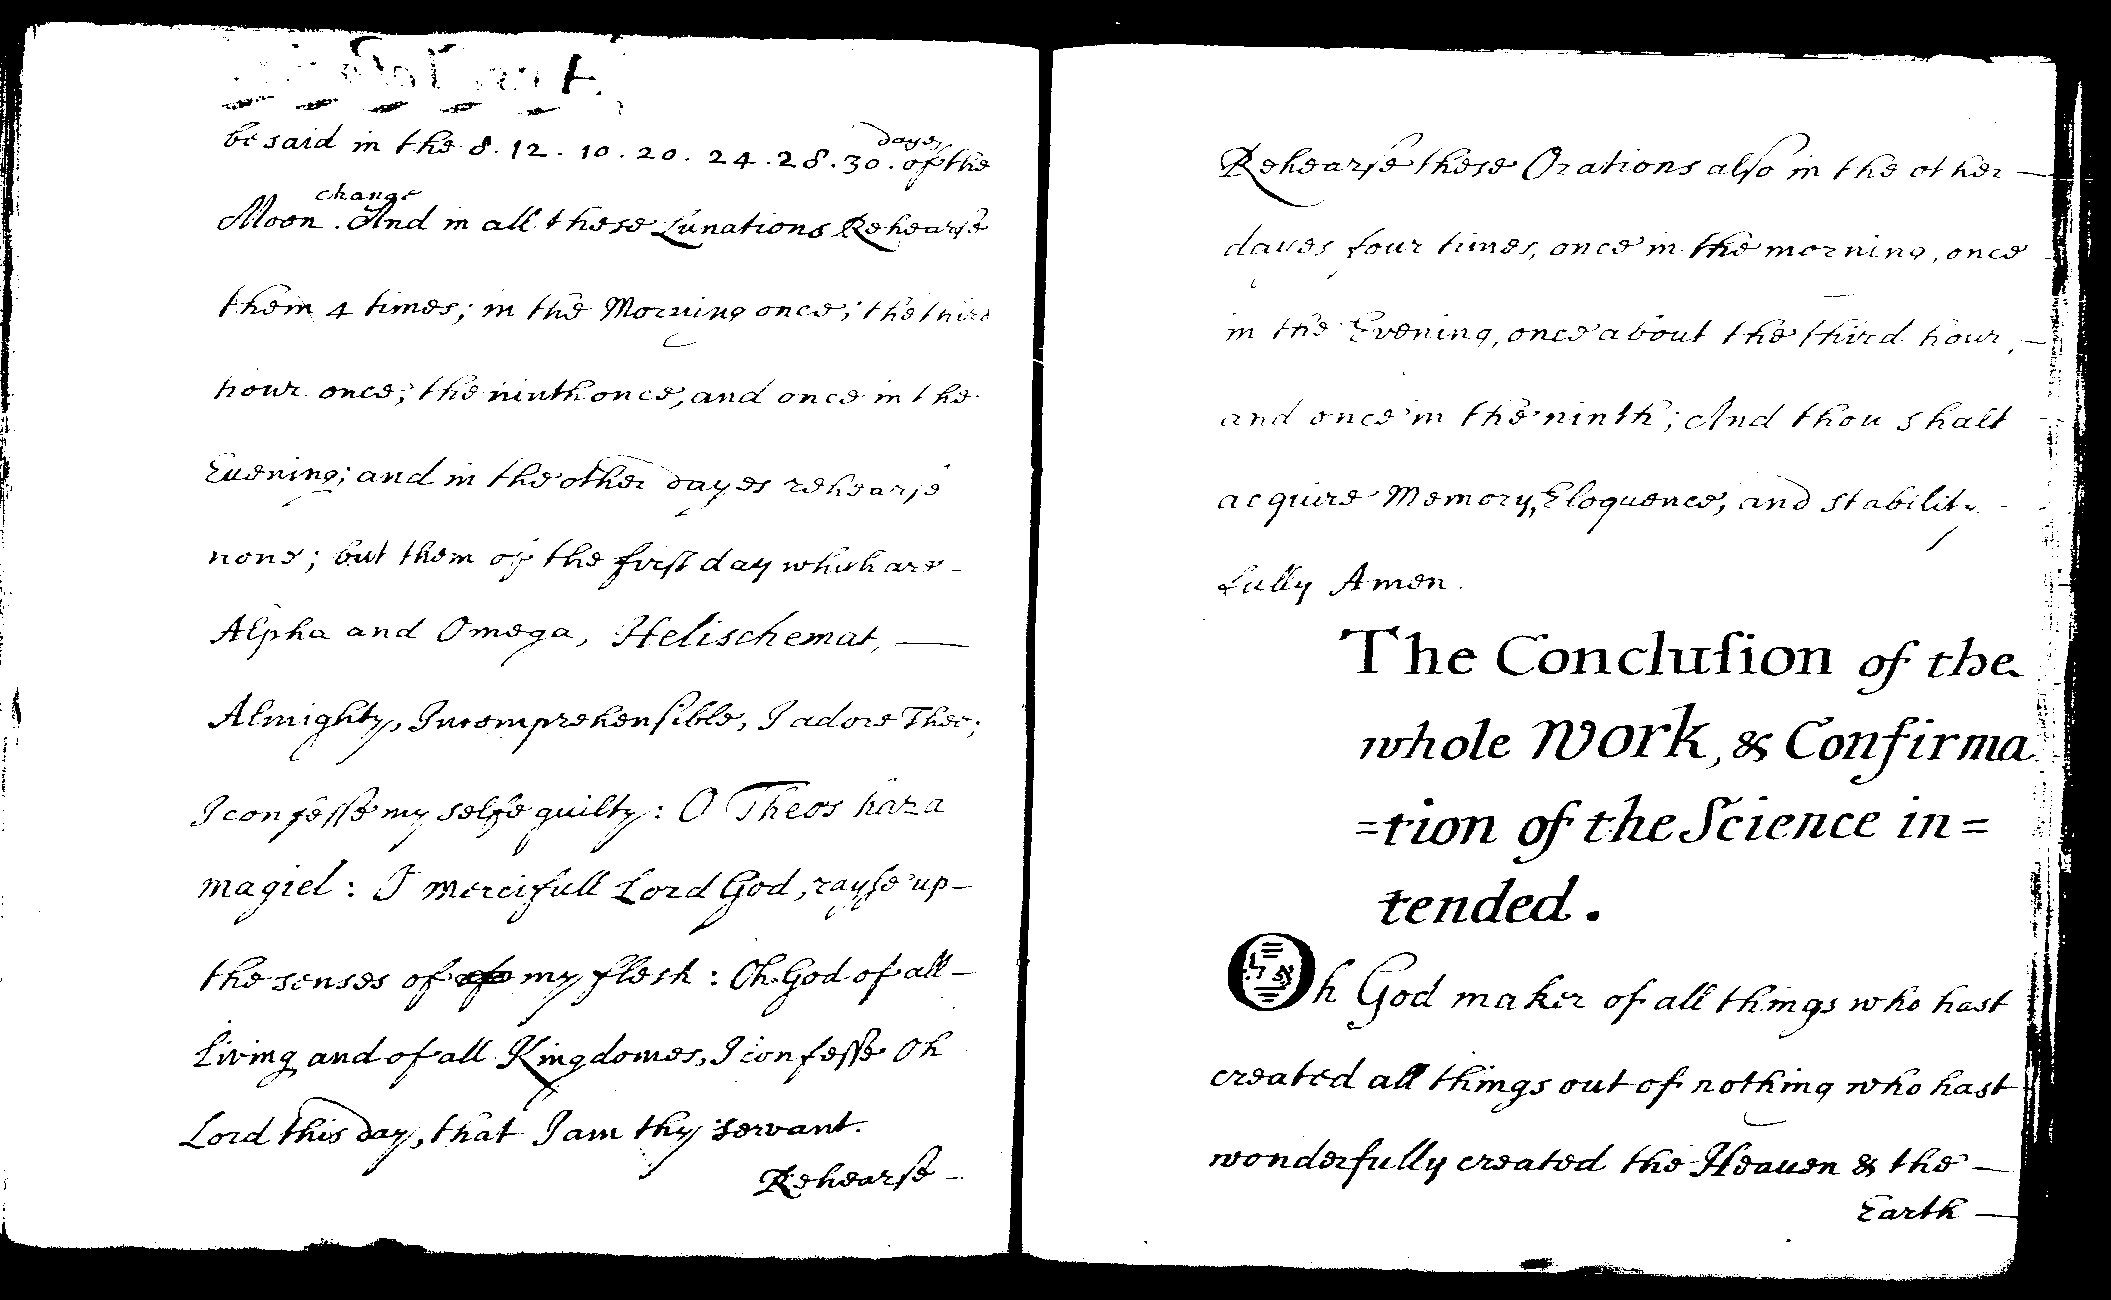 be said in the 8. 12. 10. 20. 24. 28. 30. of the
dayes
change
Moon. And in all these Lunations Rehearse
them 4 times; in the Morning once; the third
hour once; the ninth once, and once in the
Euening; and in the other dayes rehearse
none; but them of the first day which are –
Alpha and Omega, Helischemat, —
Almighty, Incomprehensible, I adore Thee;
I confesse my selfe guilty: O Theos haza
magiel: O mercifull Lord God, rayse up –
the senses of my flesh: Oh God of all –
Living and of all Kingdomes, I confesse Oh
Lord this day, that I am thy servant.
Rehearse –
Rehearse these Orations also in the other –
dayes four times, once in the morning, once
in the Evening, once about the third hour, –
and once in the ninth; And thou shalt
acquire Memory, Eloquence, and stability
Lully Amen.
The Conclusion of the
whole Work, & Confirma
=tion of the Science in=
tended.
Oh God maker of all things who hast
created all things out of nothing who hast
wonderfully created the Heauen & the –
Earth —